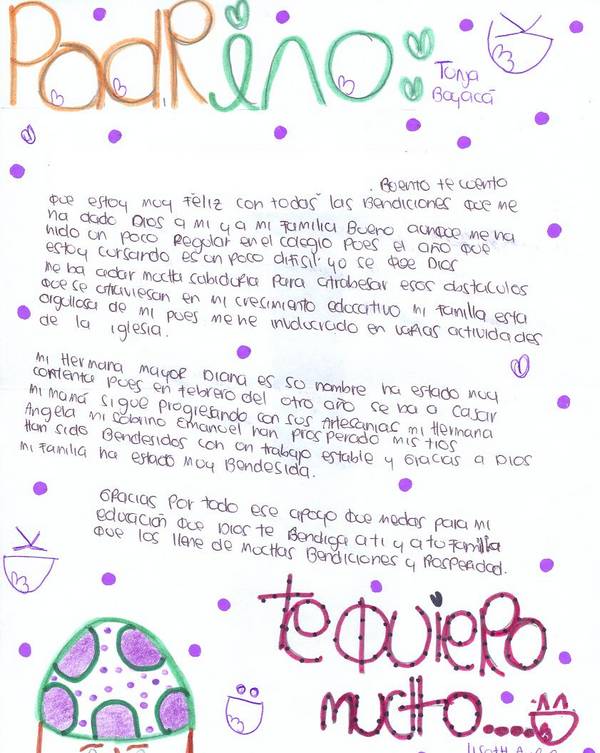 PadRino:
Tunja
Boyacá
. Bueno te cuento
que estoy muy feliz con todas las Bendiciones que me
ha dado Dios a mi y a mi familia Bueno aunque me ha
hido un poco Regular en el colegio pues el año que
estoy cursando es un poco difisil yo se que Dios
me ba adar mucha sabiduria para atrabesar esos obstaculos
que se atraviesan en mi cresimiento educativo mi familia esta
orgullosa de mi pues me he involucrado en varias actividades
de la iglesia.
mi Hermana mayor Diana es su nombre ha estado muy
contenta pues en febrero del otro año se ba a casar
mi mamá sigue progresando con sus Artesanias mi Hermana
Angela mi sobrino Emanuel han prosperado mis tios
Han sido Bendesidos con un trabajo estable y Gracias a Dios
mi familia ha estado muy Bendesida.
GRacias por todo ese apoyo que me das para mi
educación que Dios te Bendiga a ti y a tu familia
que los llene de muchas Bendiciones y Prosperidad.
te quiero
mucho....